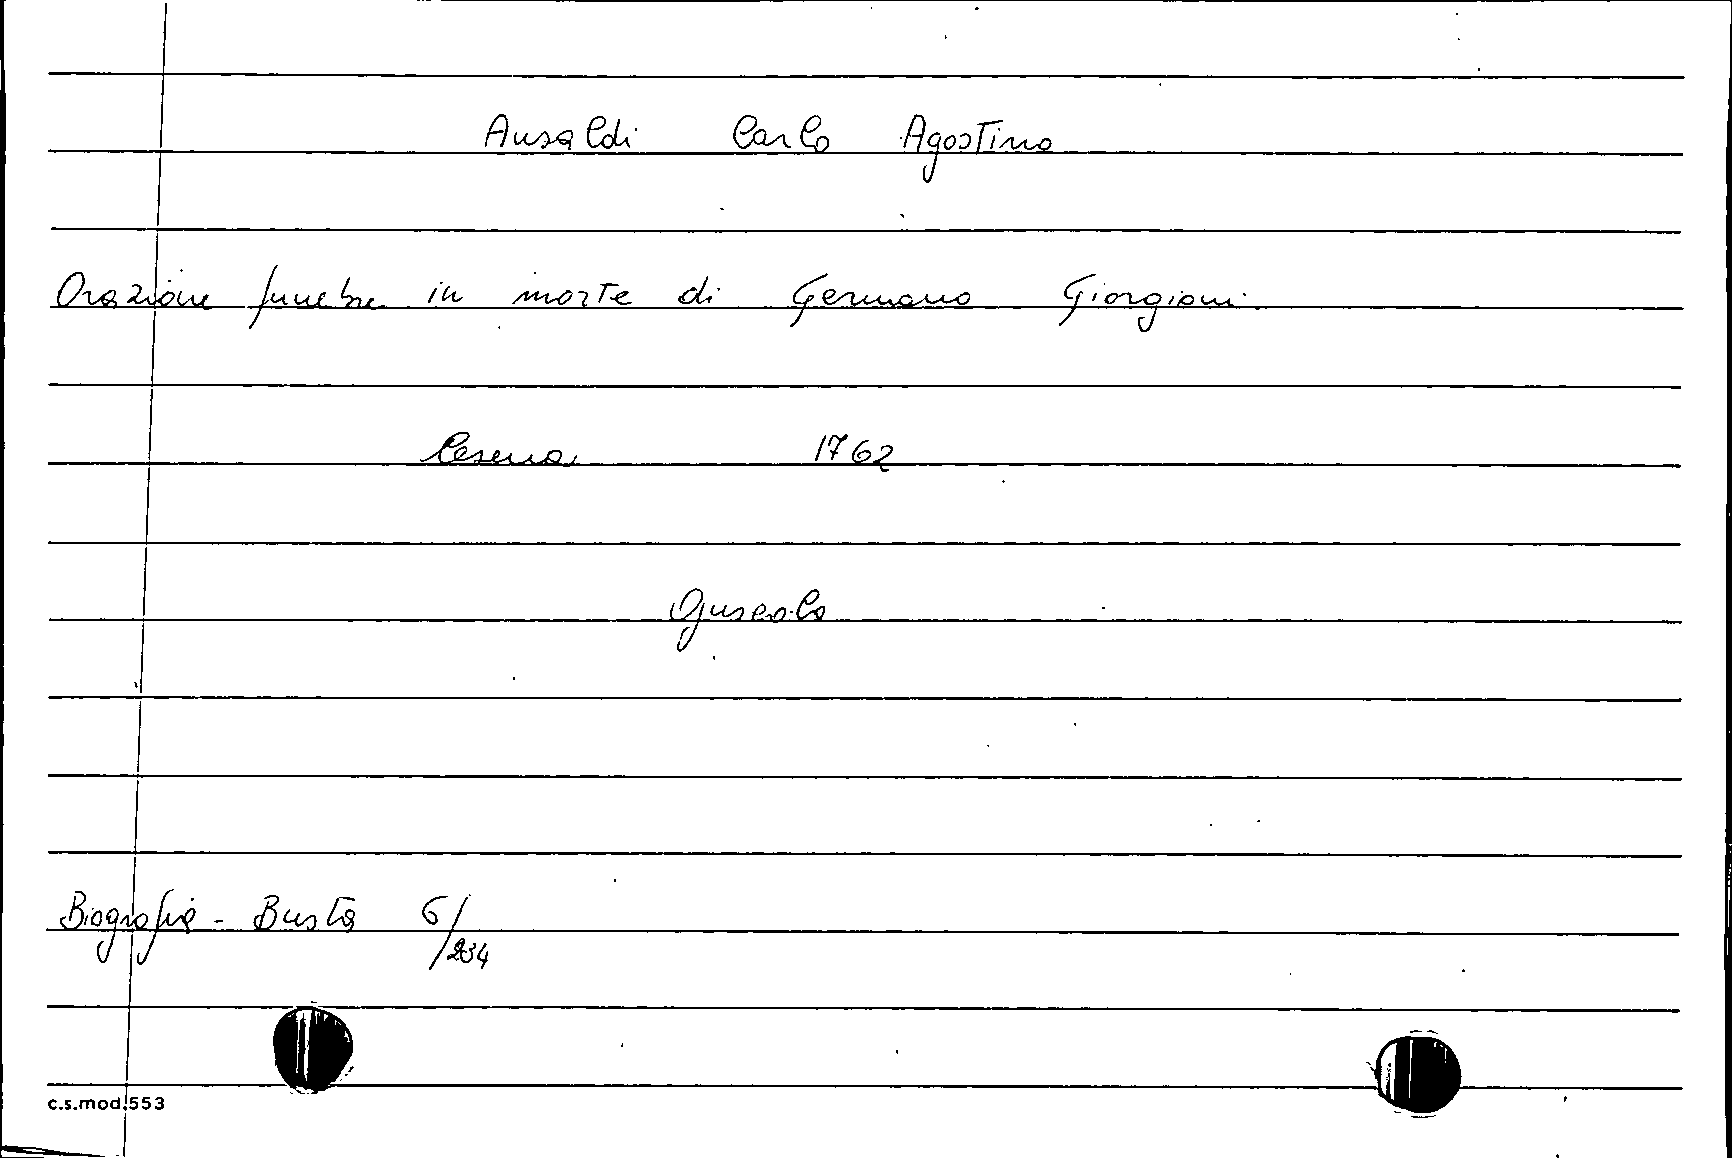 Ansaldi Carlo Agostino
Orazione funebre in morte di Germano Giorgiani
Cesena 1762
Opuscolo
Biografia - Busta 6/234
c.s.mod.553